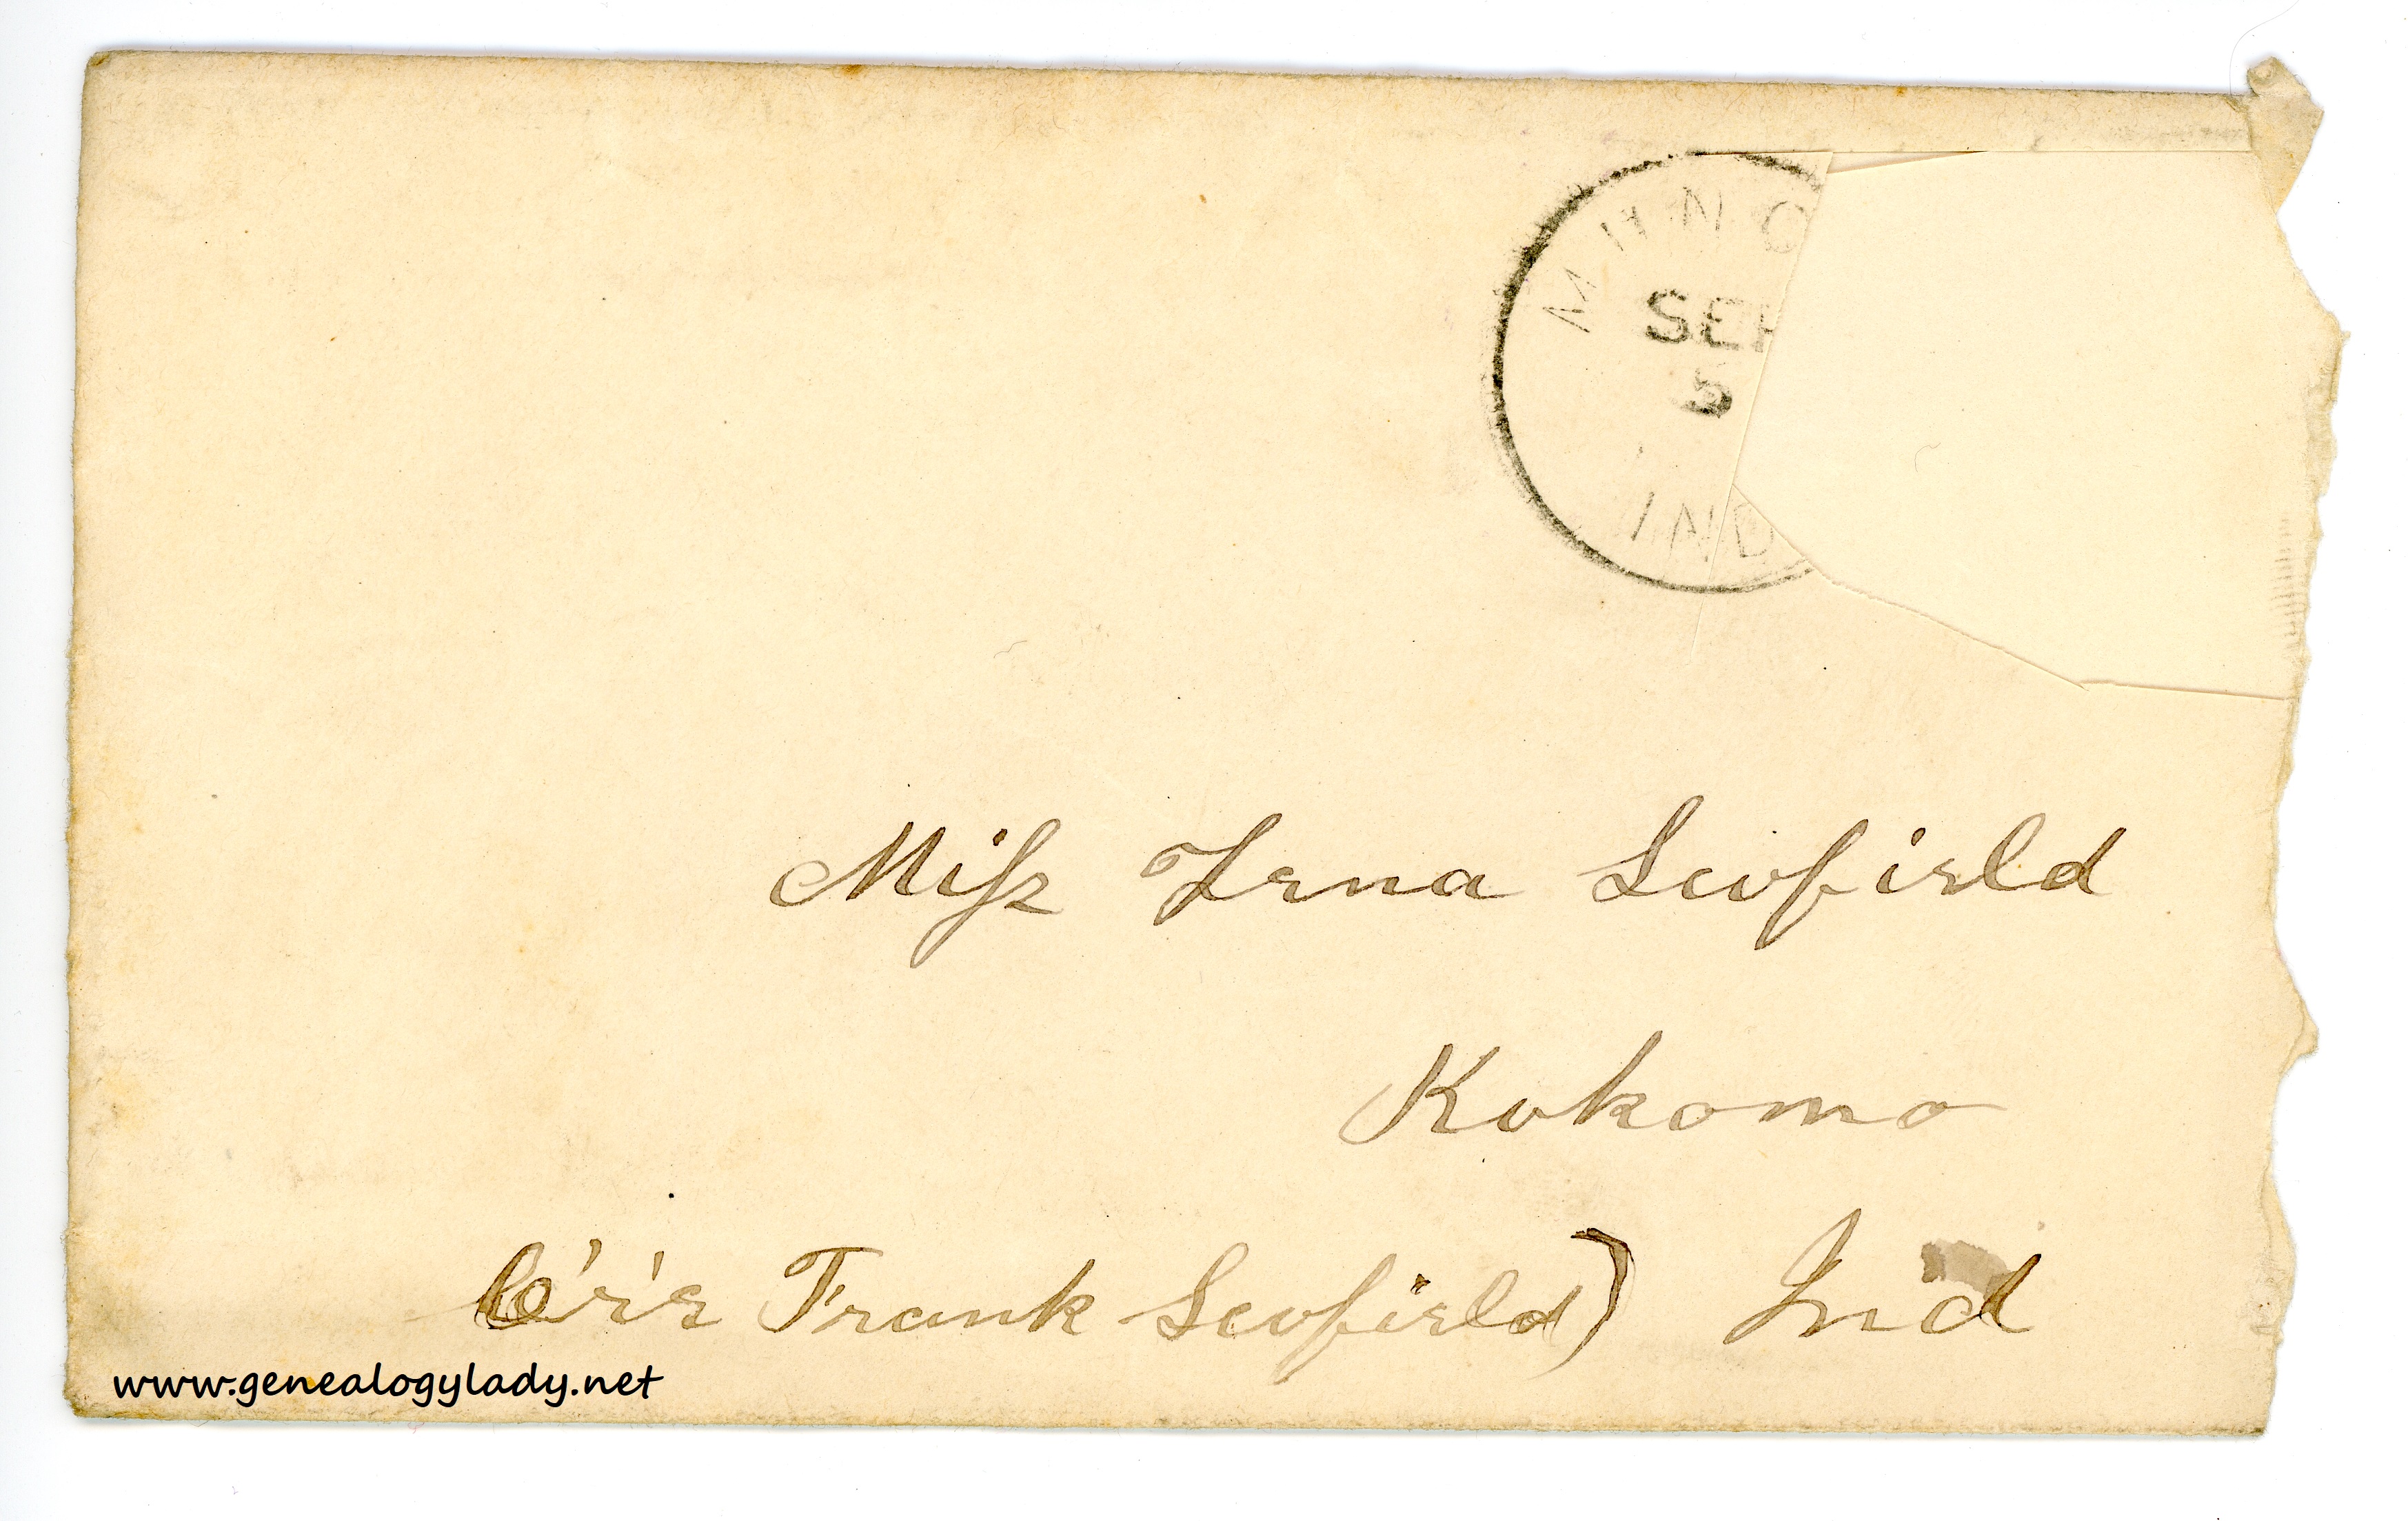 MUNC
SEP
5
IND
Miss Tena Scofield
Kokomo
C'r'e Frank Scofield) Ind
www.genealogylady.net